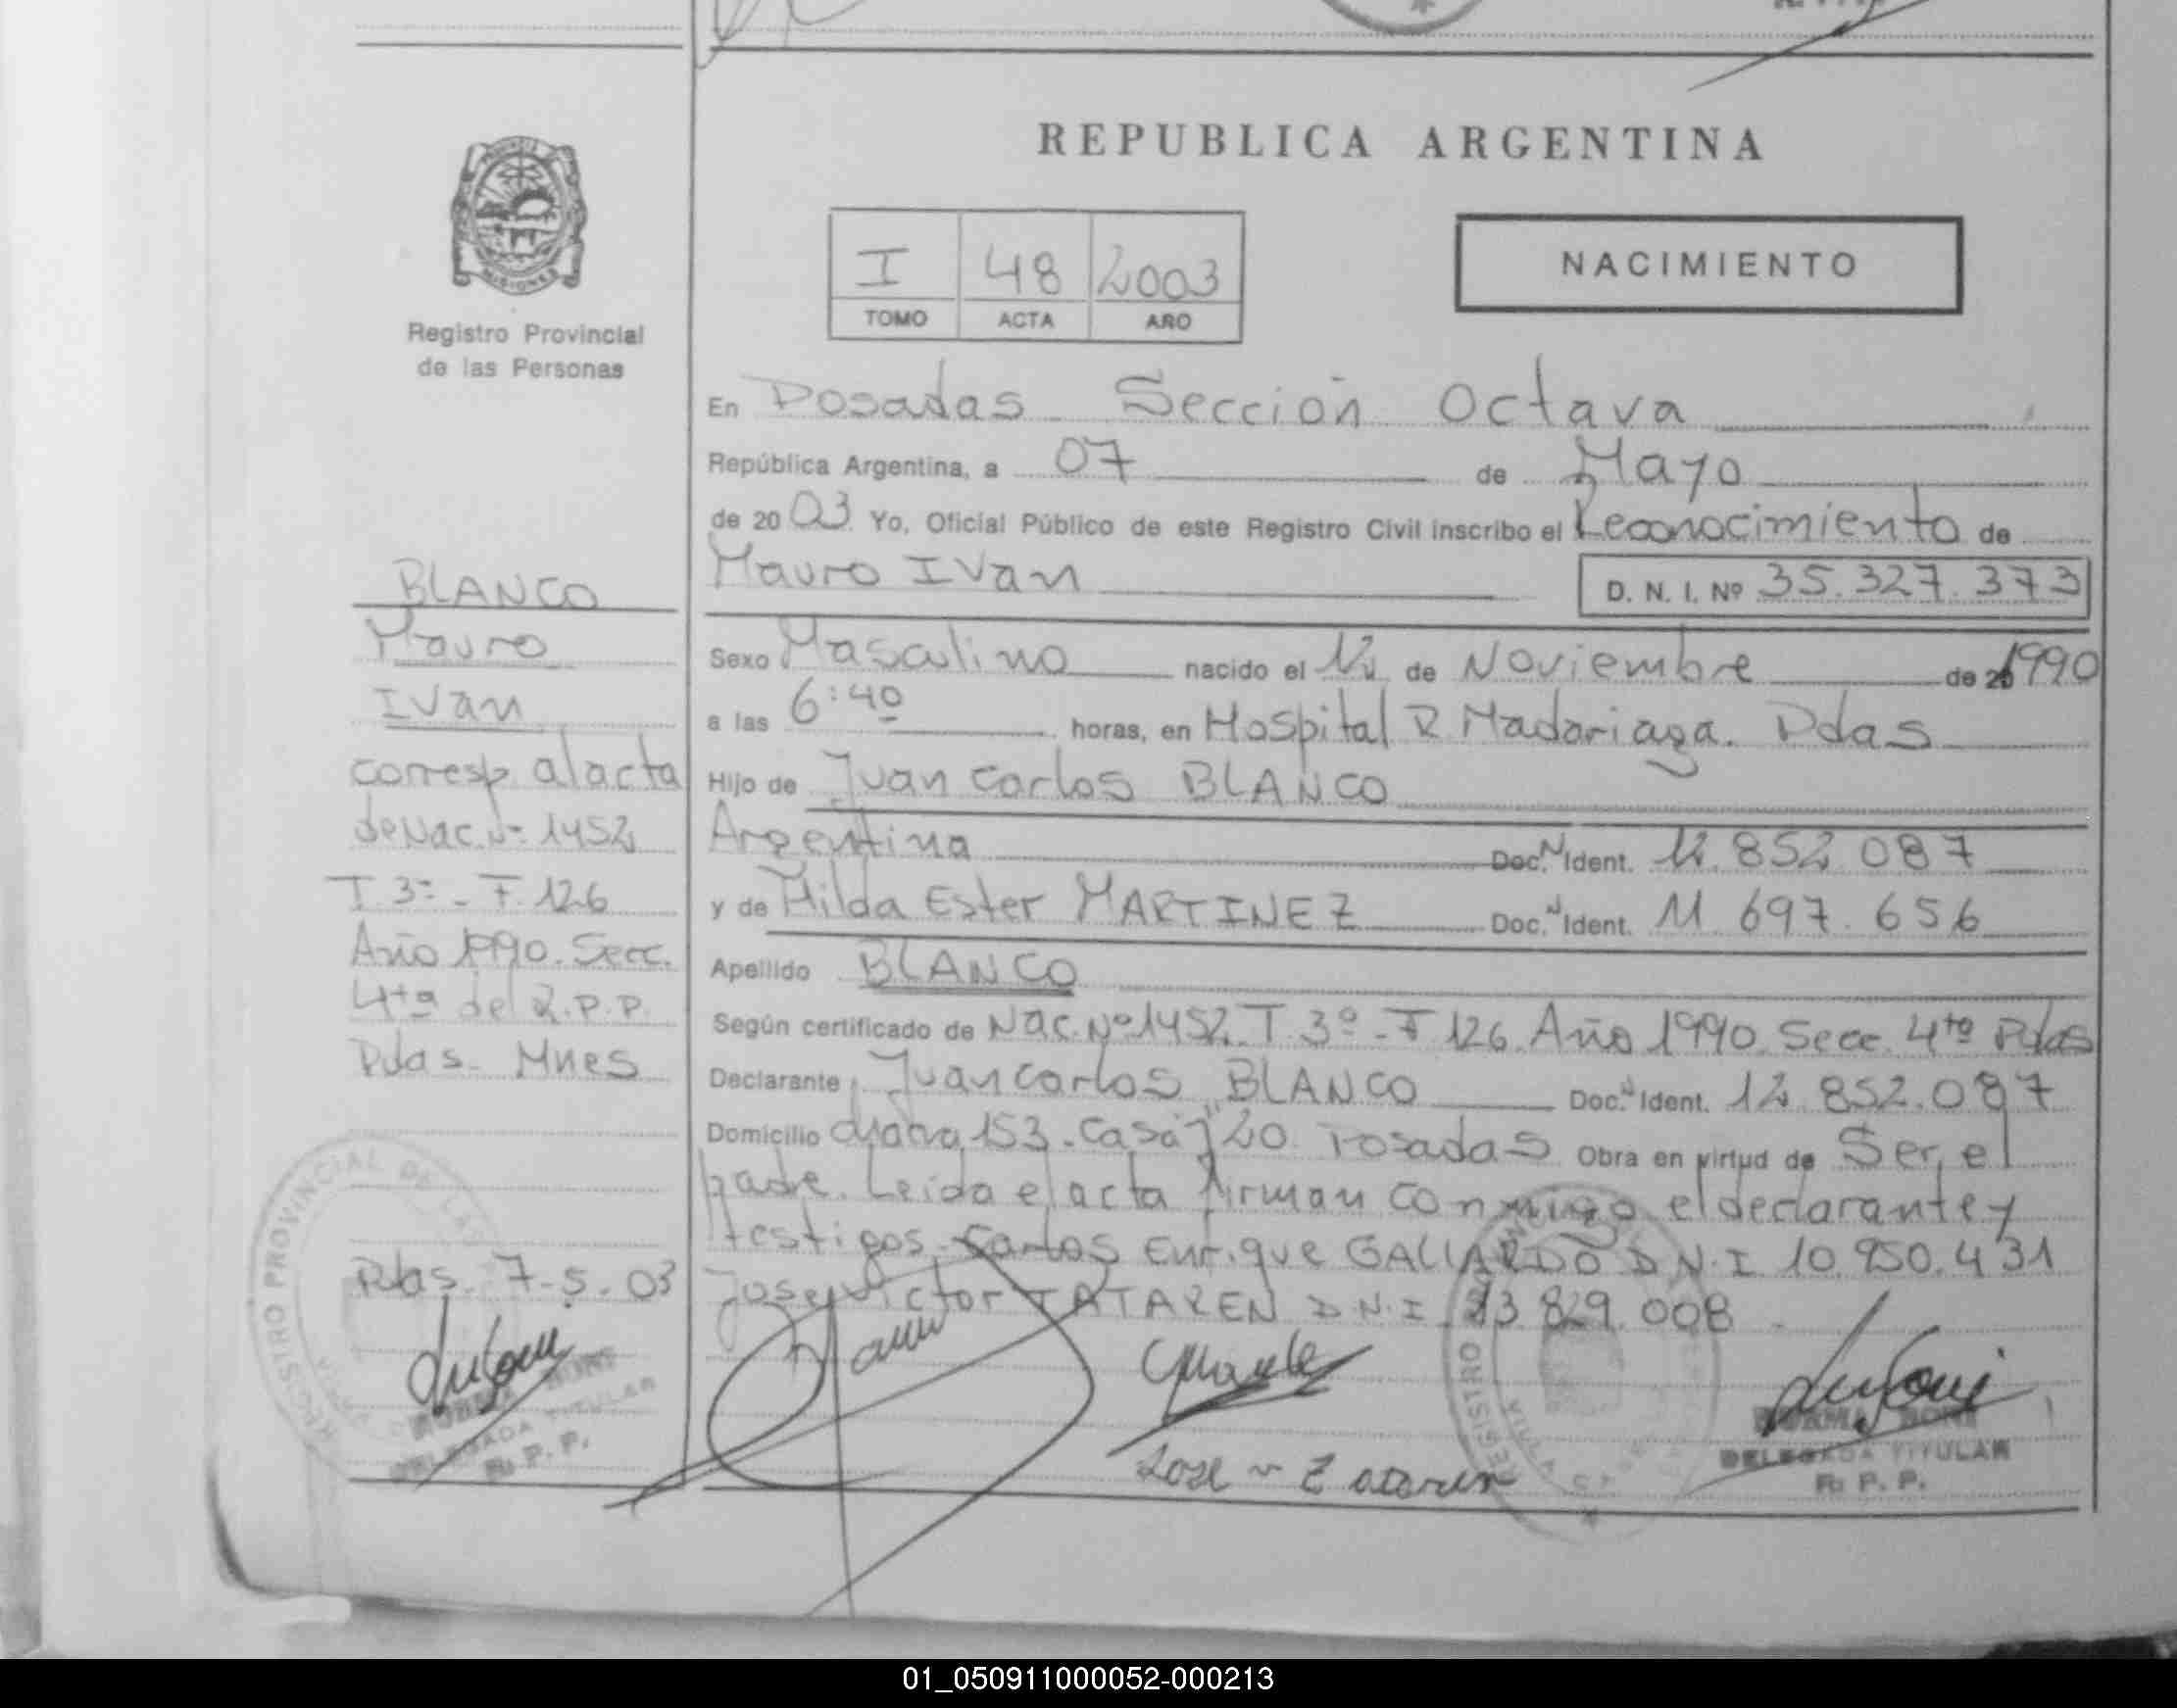 REPUBLICA ARGENTINA
PROVINCIA
MISIONES
Registro Provincial
de las Personas
I 48 2003
TOMO ACTA AÑO
NACIMIENTO
En Posadas Sección Octava
República Argentina, a 07 de Mayo
de 20 03 Yo, Oficial Público de este Registro Civil inscribo el Reconocimiento de
Mauro Ivan D. N. I. Nº 35.327.373
Sexo Masculino nacido el 12 de Noviembre de 1990
a las 6:40 horas, en Hospital R Madariaga. Pdas
Hijo de Juan Carlos BLANCO
Argentina Doc. N Ident. 12.852.087
y de Hilda Ester MARTINEZ Doc. N Ident. 11.697.656
Apellido BLANCO
Según certificado de Nac. Nº 1452 T 3º - F 126 Año 1990 Secc. 4ta Pdas
Declarante Juan Carlos BLANCO Doc. N Ident. 12.852.087
Domicilio 153 - Casa 20 Posadas Obra en virtud de Ser el
padre. Leida el acta firman conmigo el declarante y
testigos Carlos Enrique GALLARDO D.N.I 10.950.431
Jose Victor TATAREN D.N.I 13.829.008
BLANCO
Mauro
Ivan
corresp. al acta
de Nac. Nº 1452
T. 3º - F. 126
Año 1990. Secc.
4ta del R.P.P.
Pdas - Mnes
Pdas. 7-5-03
REGISTRO PROVINCIAL DE LAS
DELEGADA TITULAR
R. P. P.
REGISTRO
DELEGADA TITULAR
R. P. P.
01_050911000052-000213